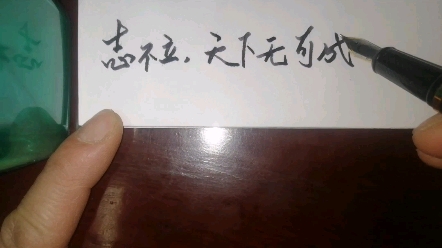 志不立,天下无可成